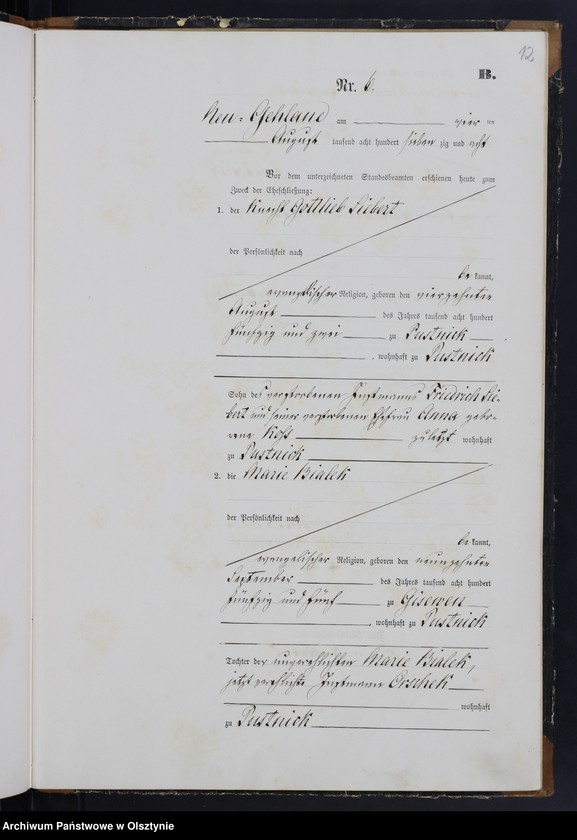 12
B.
Nr. 6.
Neu-Gehland am vier ten
August tausend acht hundert sieben zig und acht
Vor dem unterzeichneten Standesbeamten erschienen heute zum
Zweck der Eheschließung:
1. der Knecht Gottlieb Siebert
der Persönlichkeit nach
be kannt,
evangelischer Religion, geboren den vierzehnten
August des Jahres tausend acht hundert
fünfzig und zwei zu Pustnick
, wohnhaft zu Pustnick
Sohn des verstorbenen Instmanns Friedrich Sie-
bert und seiner verstorbenen Ehefrau Anna gebo-
rene Koss zuletzt wohnhaft
zu Pustnick
2. die Marie Bialek
der Persönlichkeit nach
be kannt,
evangelischer Religion, geboren den neunzehnten
September des Jahres tausend acht hundert
fünfzig und fünf zu Gisewen
, wohnhaft zu Pustnick
Tochter der unverehlichten Marie Bialek,
jetzt verehlichte Instmann
wohnhaft
zu Pustnick
Archiwum Państwowe w Olsztynie